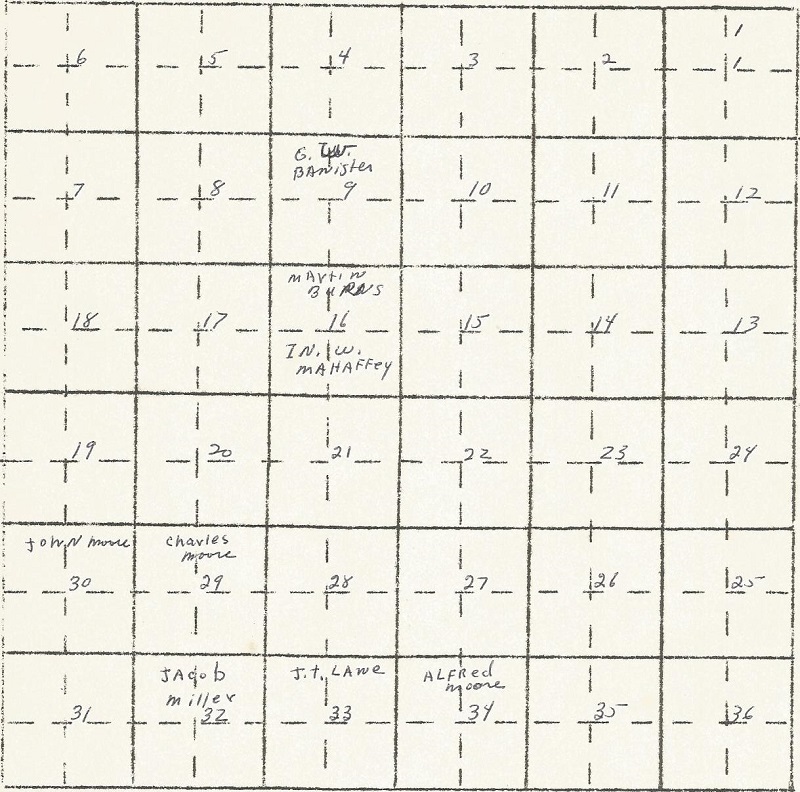 6 5 4 3 2 1
1
G. W.
BANister
7 8 9 10 11 12
MArtiN
BURNS
18 17 16 15 14 13
IN. W.
MAHAFFey
19 20 21 22 23 24
JOHN Moore
Charles
Moore
30 29 28 27 26 25
JAcob
Miller
J.T. LANe
ALFRed
Moore
31 32 33 34 35 36